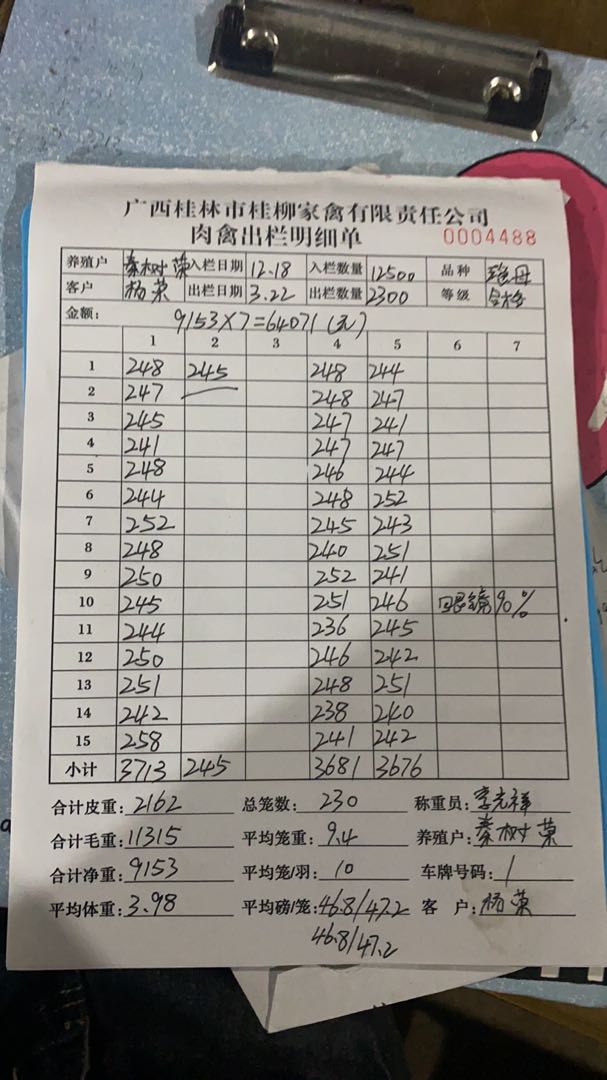 广西桂林市桂柳家禽有限责任公司
肉禽出栏明细单 0004488
养殖户 秦树荣 入栏日期 12.18 入栏数量 12500 品种
客户 杨荣 出栏日期 3.22 出栏数量 2300 等级 合格
金额: 9153×7=64071(元)
1 2 3 4 5 6 7
1 248 245 248 244
2 247 248 247
3 245 247 241
4 241 247 247
5 248 246 244
6 244 248 252
7 252 245 243
8 248 240 251
9 250 252 241
10 245 251 246 眼镜90%
11 244 236 245
12 250 246 242
13 251 248 251
14 242 238 240
15 258 241 242
小计 3713 245 3681 3676
合计皮重: 2162 总笼数: 230 称重员: 李光祥
合计毛重: 11315 平均笼重: 9.4 养殖户: 秦树荣
合计净重: 9153 平均笼/羽: 10 车牌号码: /
平均体重: 3.98 平均磅/笼: 46.8/47.2 客 户: 杨荣
46.8/47.2